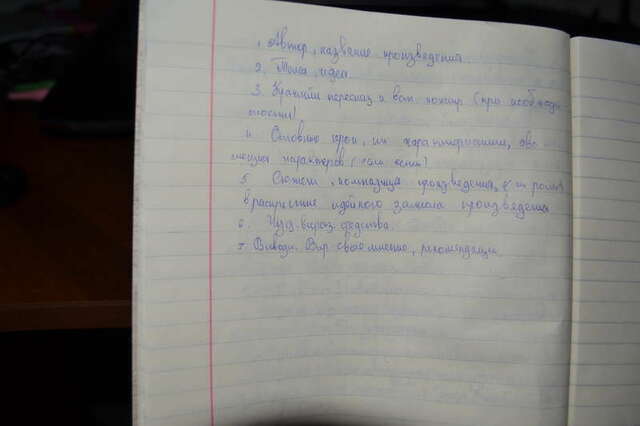 1. Автор, название произведения.
2. Тема, идея.
3. Краткий пересказ и ваш комер (при необходи
мости)
4. Основные герои, их характеристики, эво
люция характеров (если есть)
5. Сюжет, композиция произведения, и их роль
в раскрытие идейного замысла произведения
6. Худ. вырази. средства.
7. Выводы. Выр. свое мнение, рекомендации